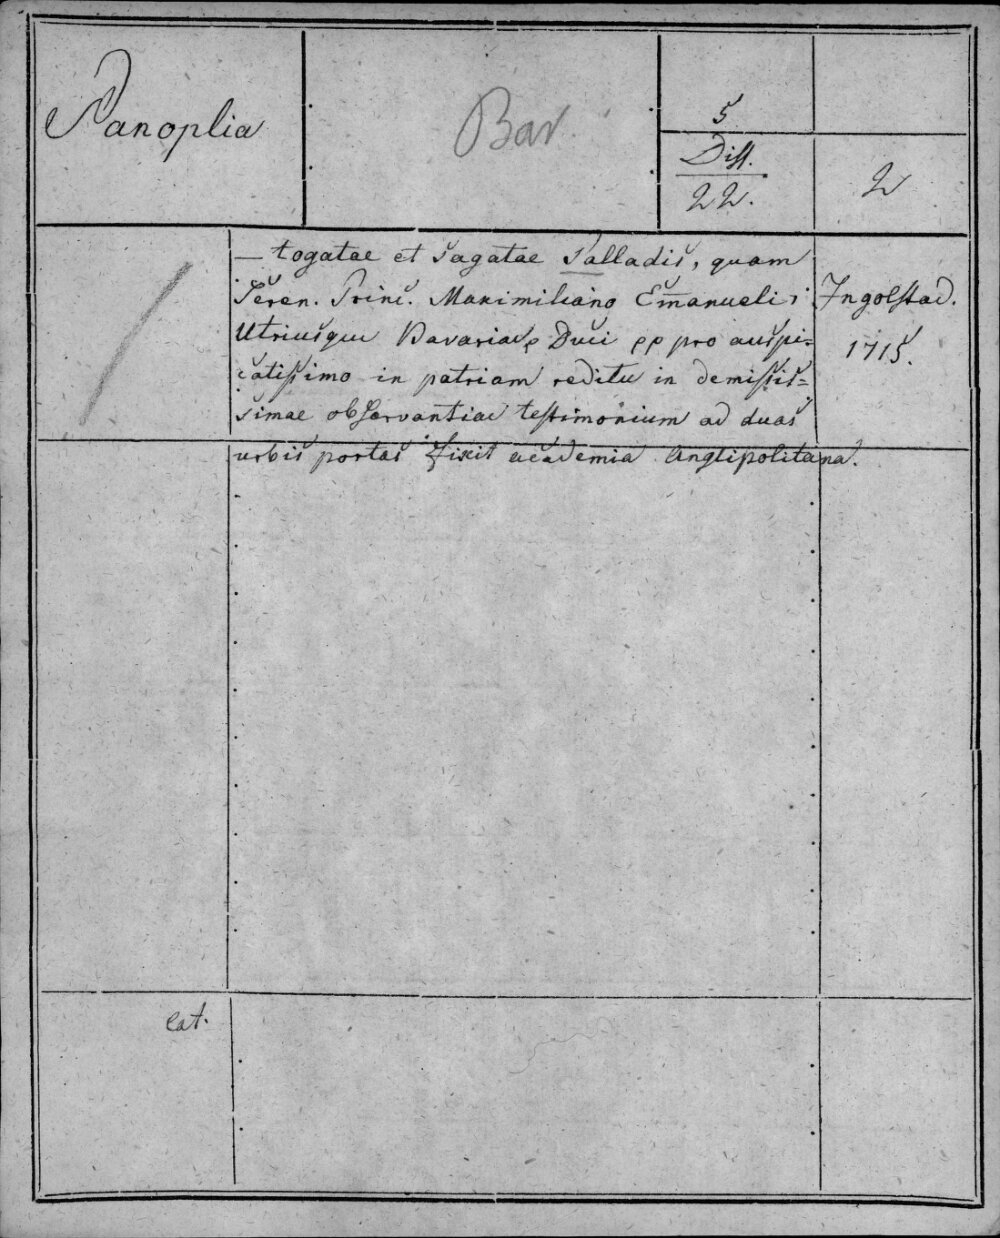 Panoplia
Bav.
5
Diss.
22.
2
— togatae et sagatae Palladis, quam
Seren. Princ. Maximiliano Emanueli,
Utriusque Bavariae Duci pp pro auspi=
catissimo in patriam reditu in demissis=
simae observantiae testimonium ad duas
urbis portas fixit academia Anglipolitana.
Ingolstad.
1715.
lat.